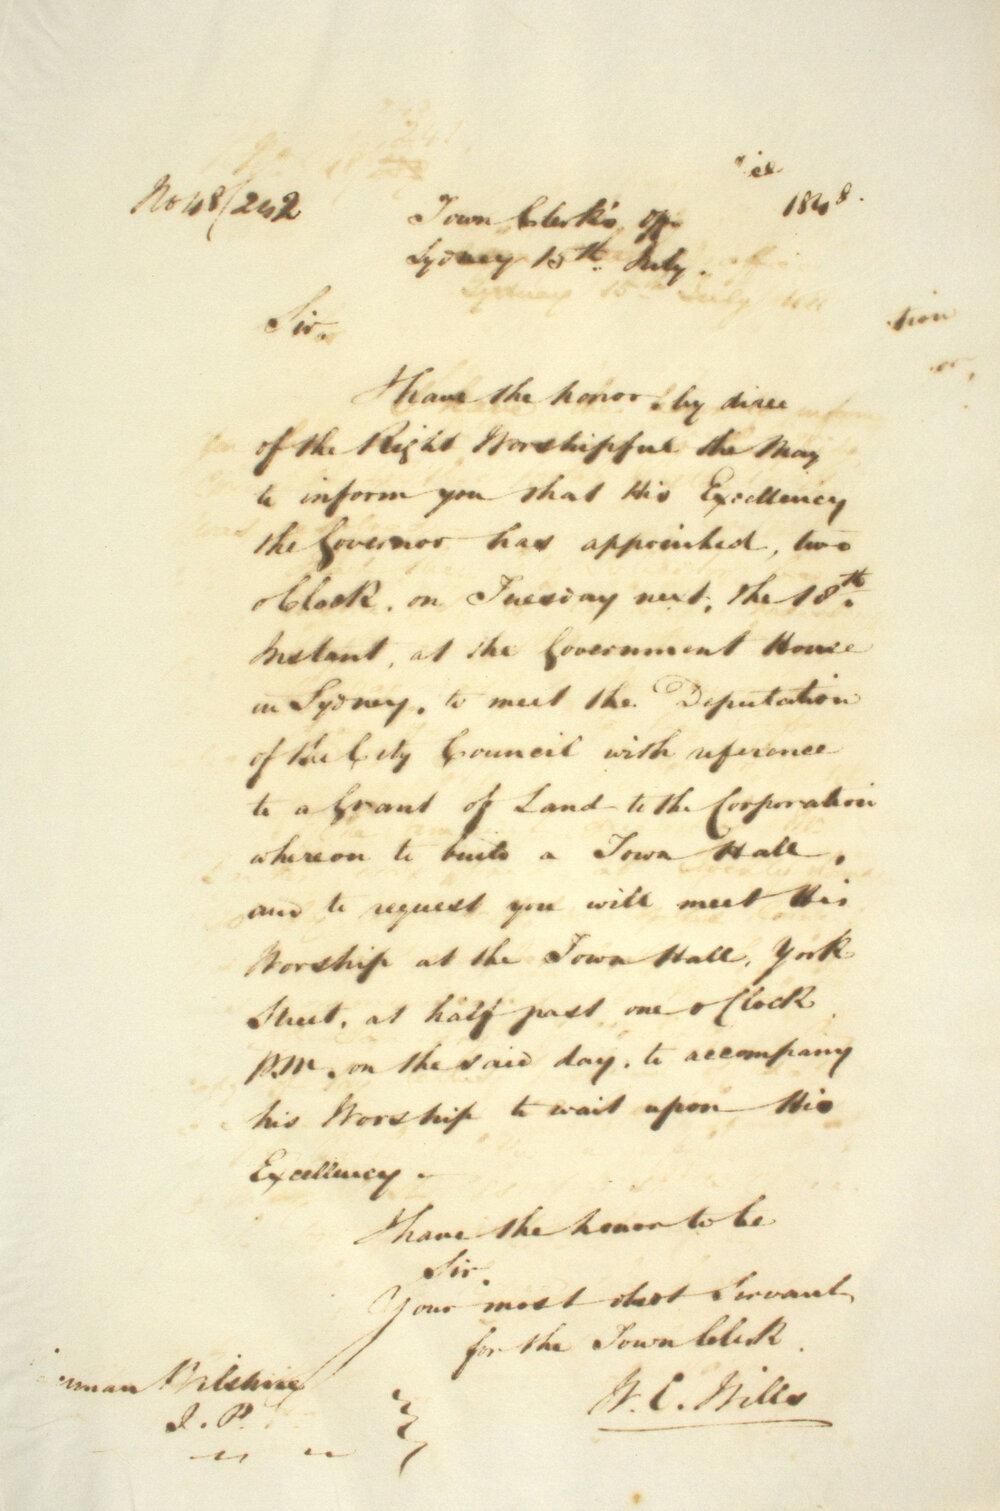 No 48/242
Town Clerk's Office
Sydney 15th July. 1848.
Sir.
I have the honor, by direction
of the Right Worshipful the Mayor,
to inform you that His Excellency
the Governor has appointed, two
oClock, on Tuesday next, the 18th.
Instant, at the Government House
in Sydney, to meet the Deputation
of the City Council with reference
to a Grant of Land to the Corporation
whereon to build a Town Hall,
and to request you will meet His
Worship at the Town Hall, York
Street, at half past one oClock
P.M., on the said day, to accompany
his Worship to wait upon His
Excellency.
I have the honor to be
Sir,
Your most obdt Servant,
for the Town Clerk.
W. C. Wills
erman Wilshire
J. P.
" "